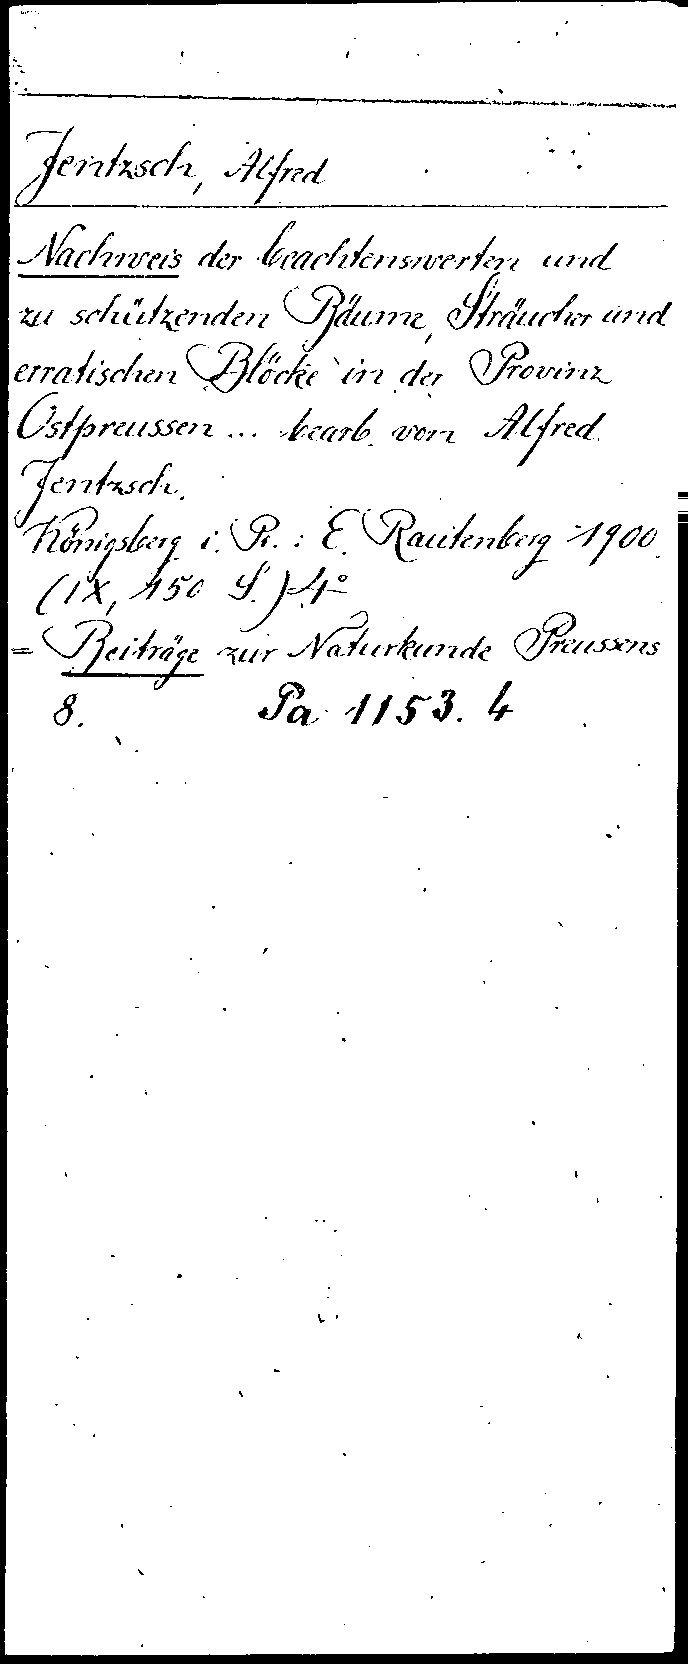 Jentzsch, Alfred
Nachweis der beachtenswerten und
zu schützenden Bäume, Sträucher und
erratischen Blöcke in der Provinz
Ostpreussen ... bearb. von Alfred
Jentzsch.
Königsberg i. Pr. : E. Rautenberg 1900.
(IX, 150 S.) 4°
= Beiträge zur Naturkunde Preussens
8. Pa 1153. 4